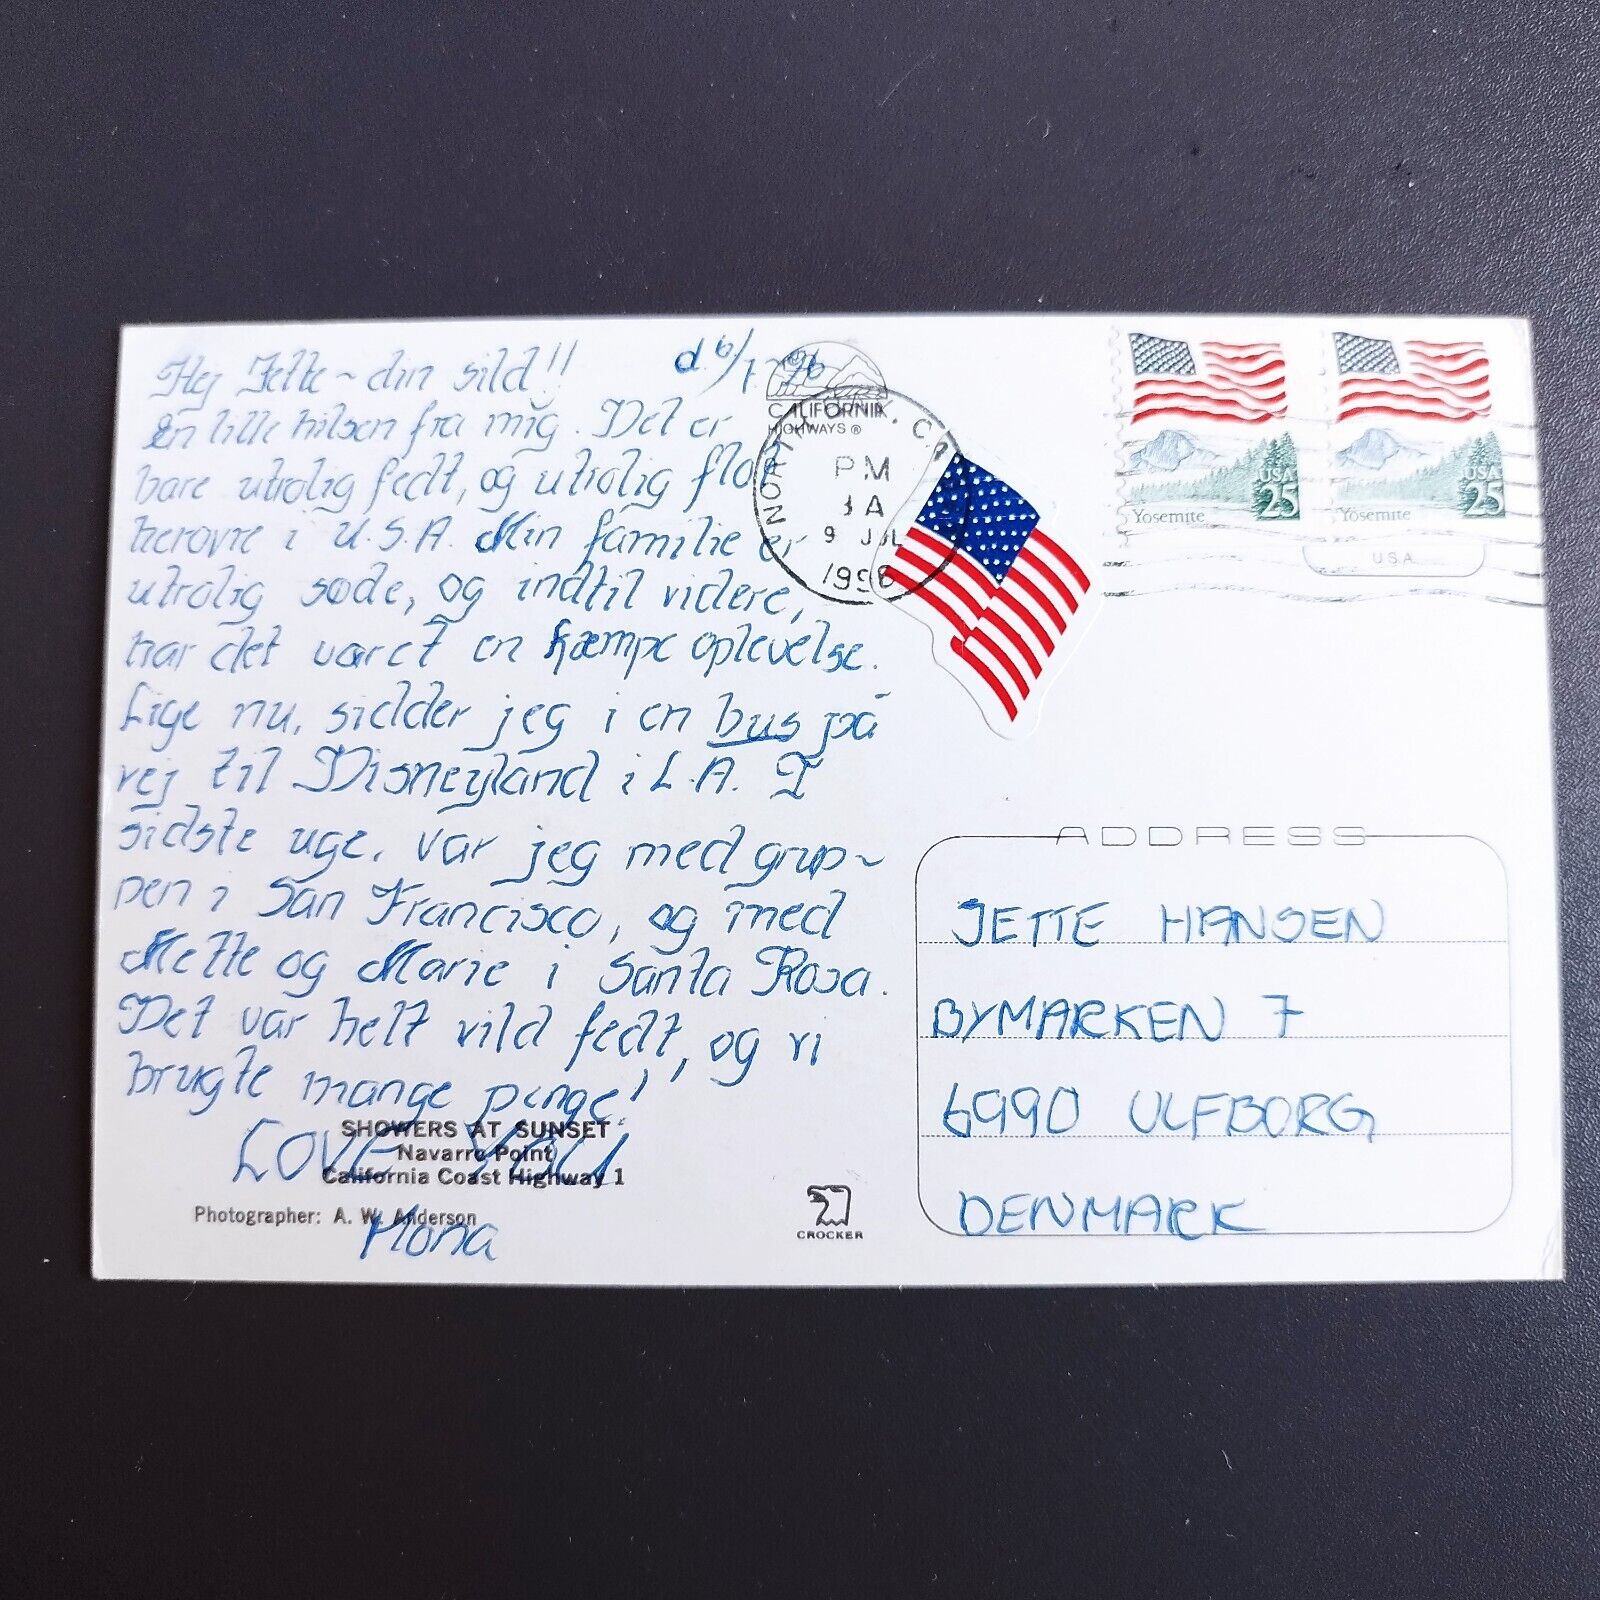 Hej Jette ~ din sild!! d. 6/7 96
En lille hilsen fra mig. Det er
bare utrolig fedt, og utrolig flot
herovre i U.S.A. Min familie er
utrolig søde, og indtil videre,
har det været en kæmpe oplevelse.
Lige nu, sidder jeg i en bus på
vej til Disneyland i L.A. I
sidste uge, var jeg med grup~
pen i San Francisco, og med
Mette og Marie i Santa Rosa.
Det var helt vild fedt, og vi
brugte mange penge!
LOVE YOU
Mona
SHOWERS AT SUNSET
Navarro Point
California Coast Highway 1
Photographer: A. W. Anderson
CROCKER
CALIFORNIA
HIGHWAYS ®
PM
9 JUL
1996
USA
25
Yosemite
USA
25
Yosemite
U S A
ADDRESS
JETTE HANSEN
BYMARKEN 7
6990 ULFBORG
DENMARK